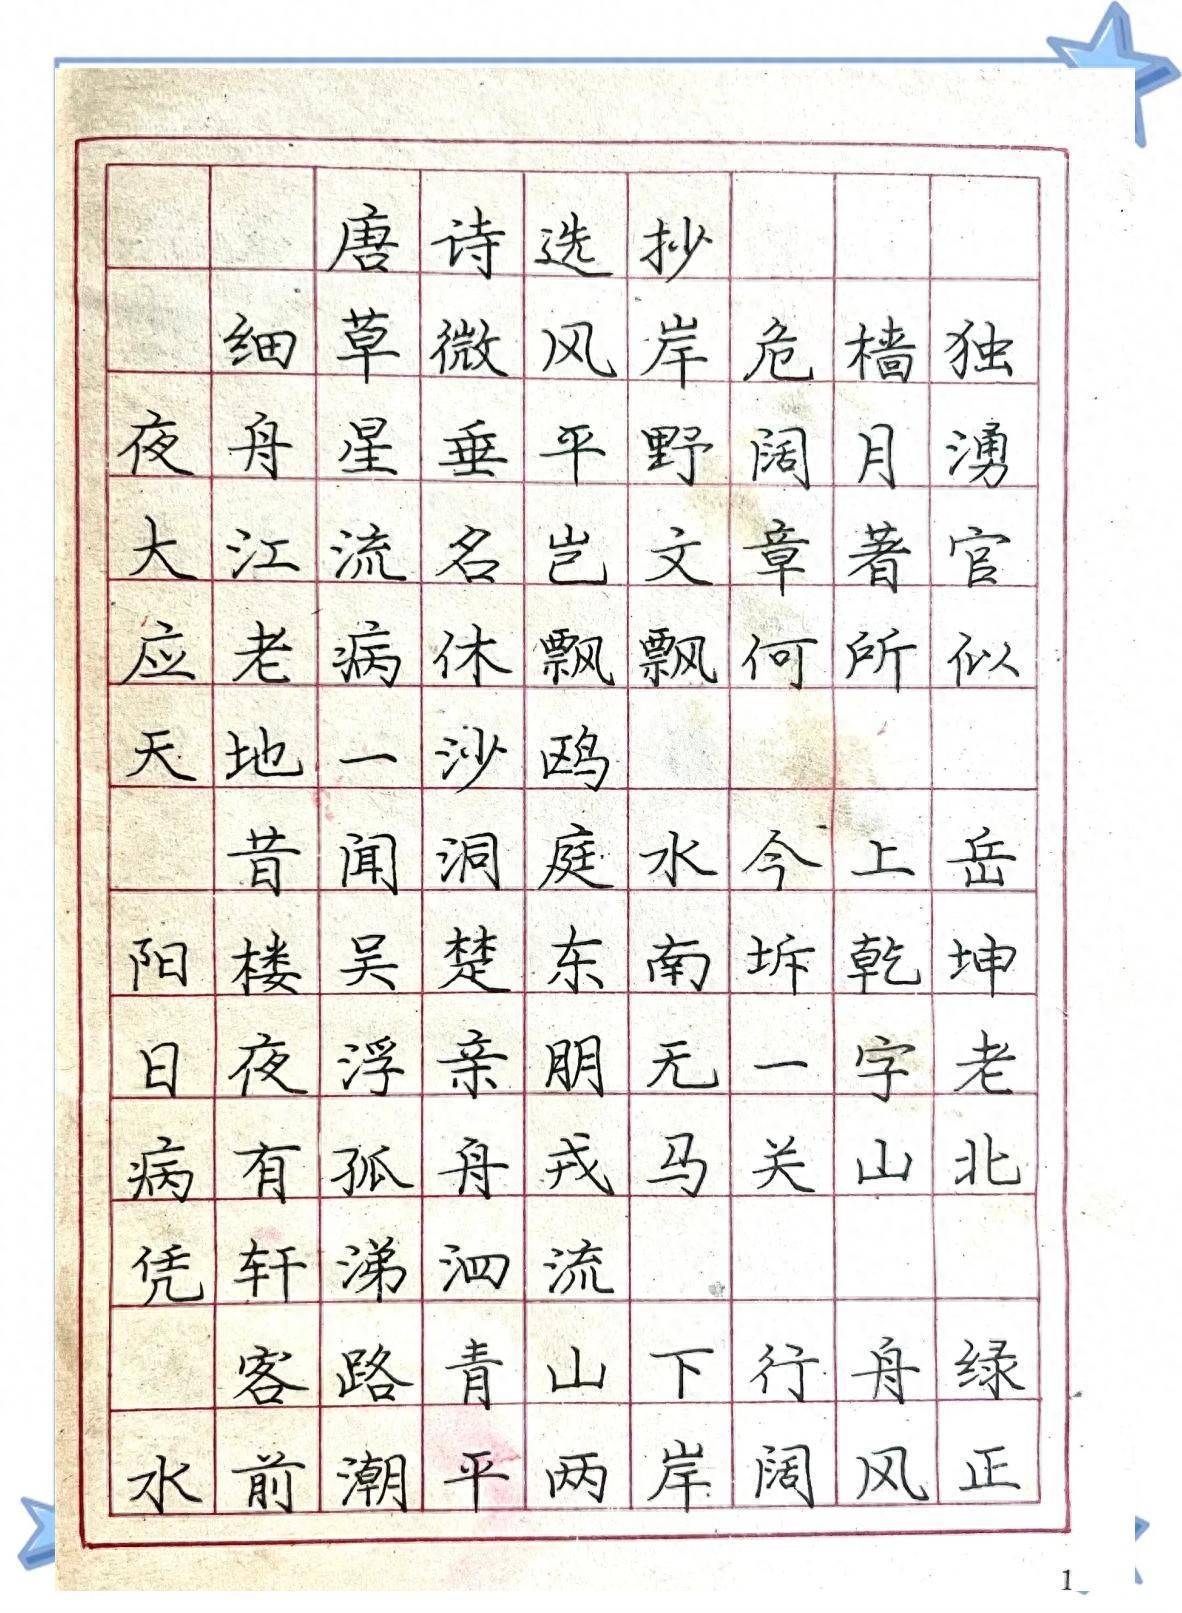 唐诗选抄
细草微风岸危樯独
夜舟星垂平野阔月湧
大江流名岂文章著官
应老病休飘飘何所似
天地一沙鸥
昔闻洞庭水今上岳
阳楼吴楚东南坼乾坤
日夜浮亲朋无一字老
病有孤舟戎马关山北
凭轩涕泗流
客路青山下行舟绿
水前潮平两岸阔风正
1